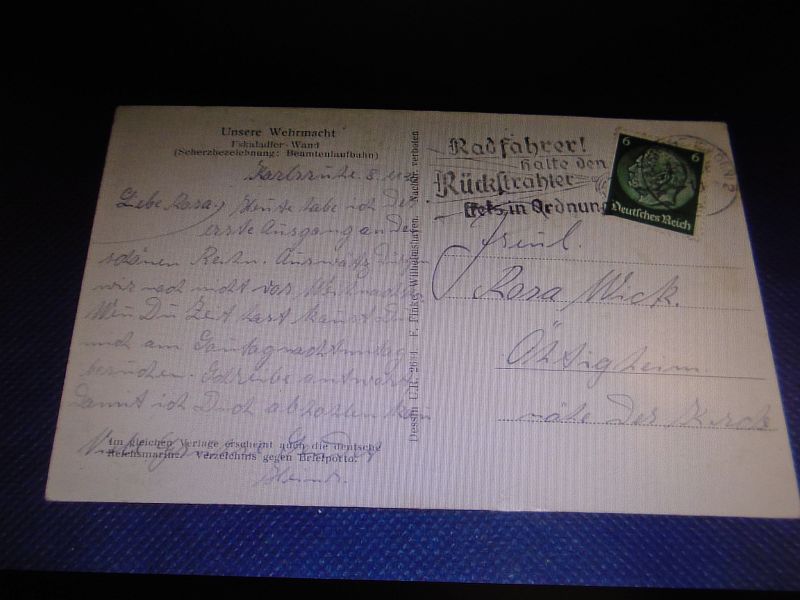 Unsere Wehrmacht
Eskaladier-Wand
(Scherzbezeichnung: Beamtenlaufbahn)
Karlsruhe 8.
Liebe Rosa, Heute habe ich den
erste Ausgang an den
schönen Rein. Auswärtz dürfen
wir noch nicht vor Weihnachten.
Wen Du Zeit hast kanst Du
mich am Sontagnachmittag
besuchen. Schreibe antwort
damit ich Dich abhohlen kan
Im gleichen Verlage erscheint auch die deutsche
Reichsmarine. Verzeichnis gegen Briefporto.
Dessin U.R. F. Finke, Wilhelmshaven. Nachdr. verboten
Radfahrer!
halte den
Rückstrahler
stets in Ordnung
6 6
Deutsches Reich
Freul.
Rosa Wick.
Ötigheim
nähe der Kirch